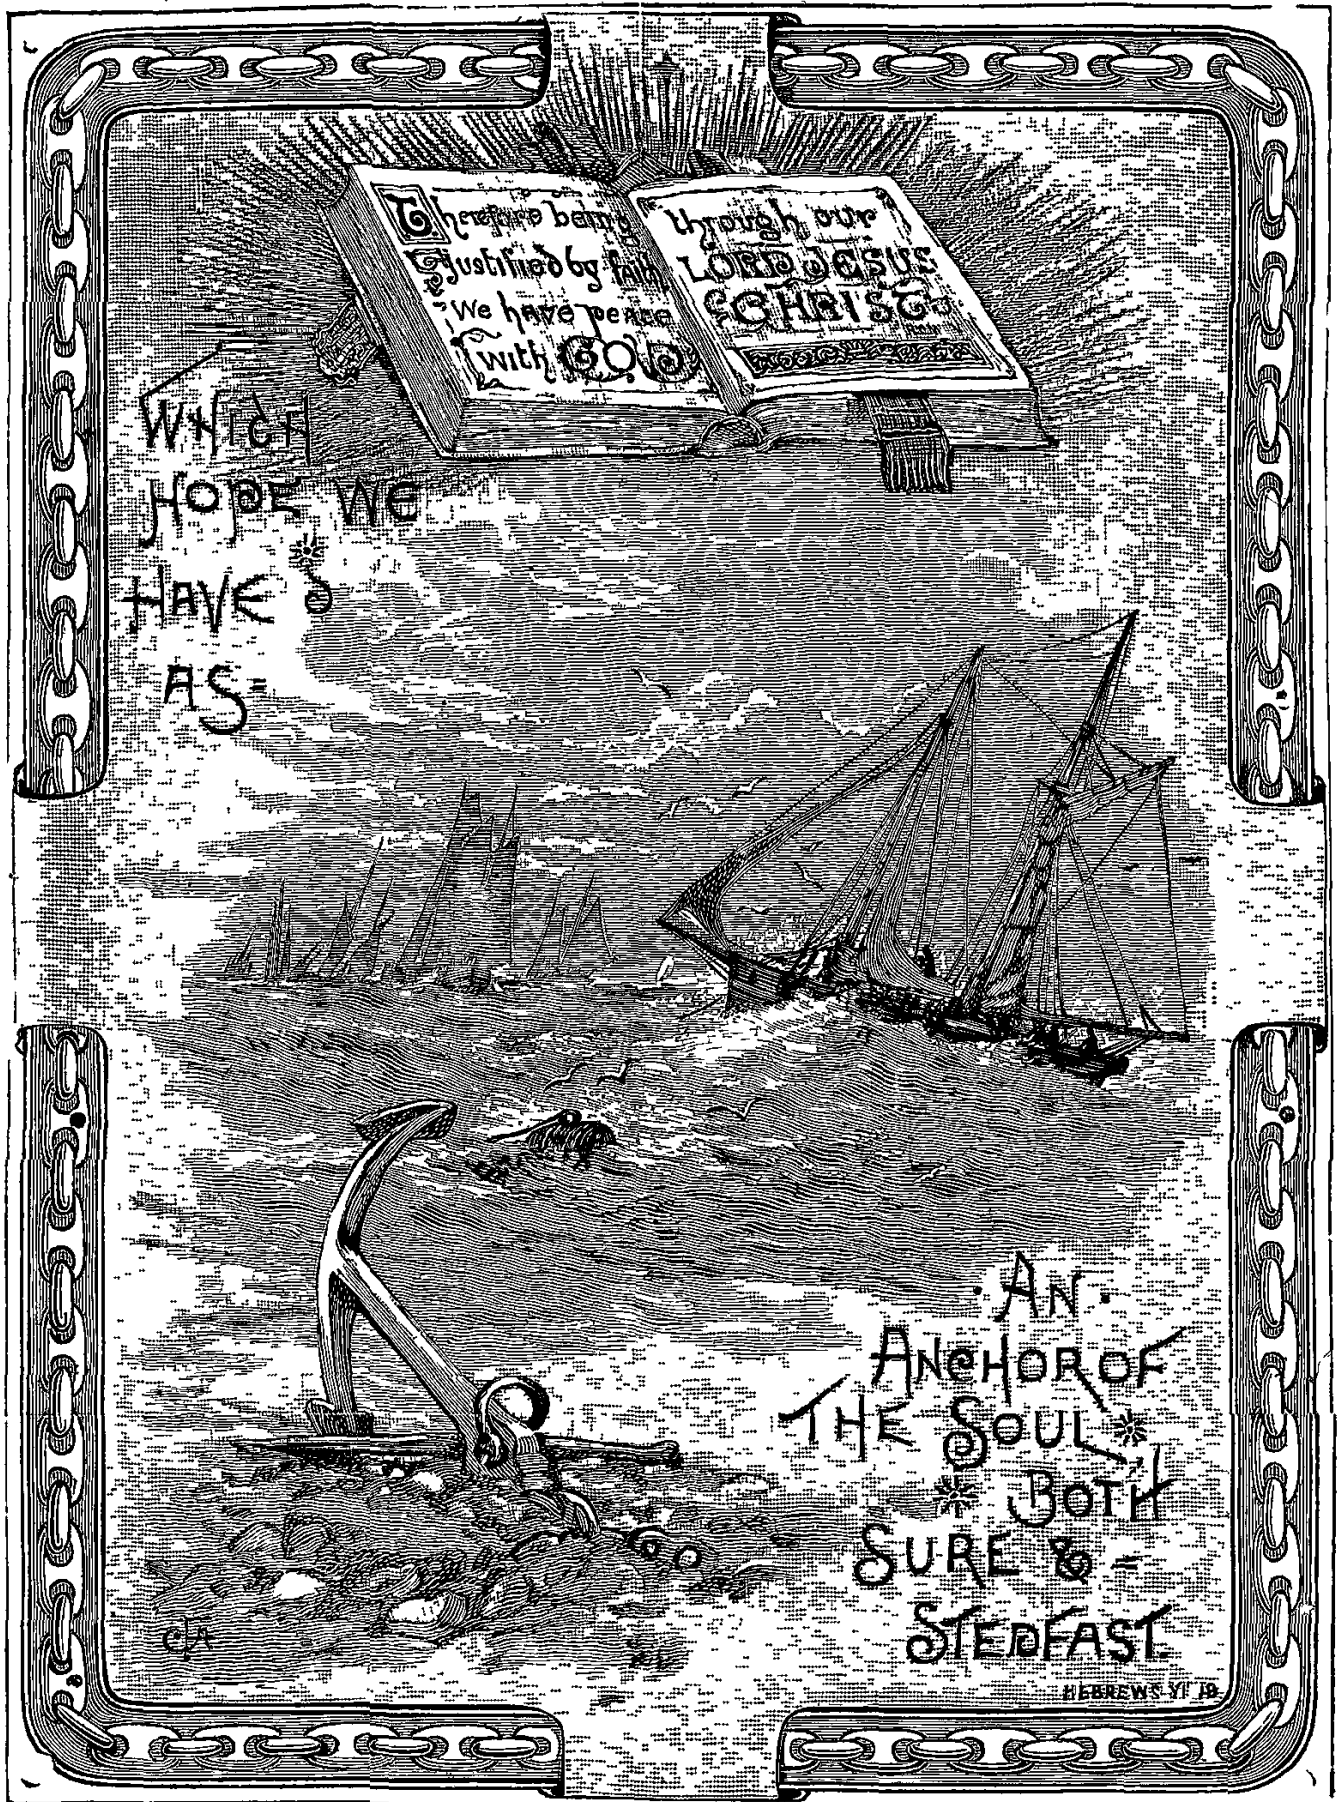 Therefore being
Justified by faith
We have peace
with GOD
through our
LORD JESUS
CHRIST
WHICH
HOPE WE
HAVE
AS
AN
ANCHOR OF
THE SOUL
BOTH
SURE &
STEDFAST.
HEBREWS VI 19